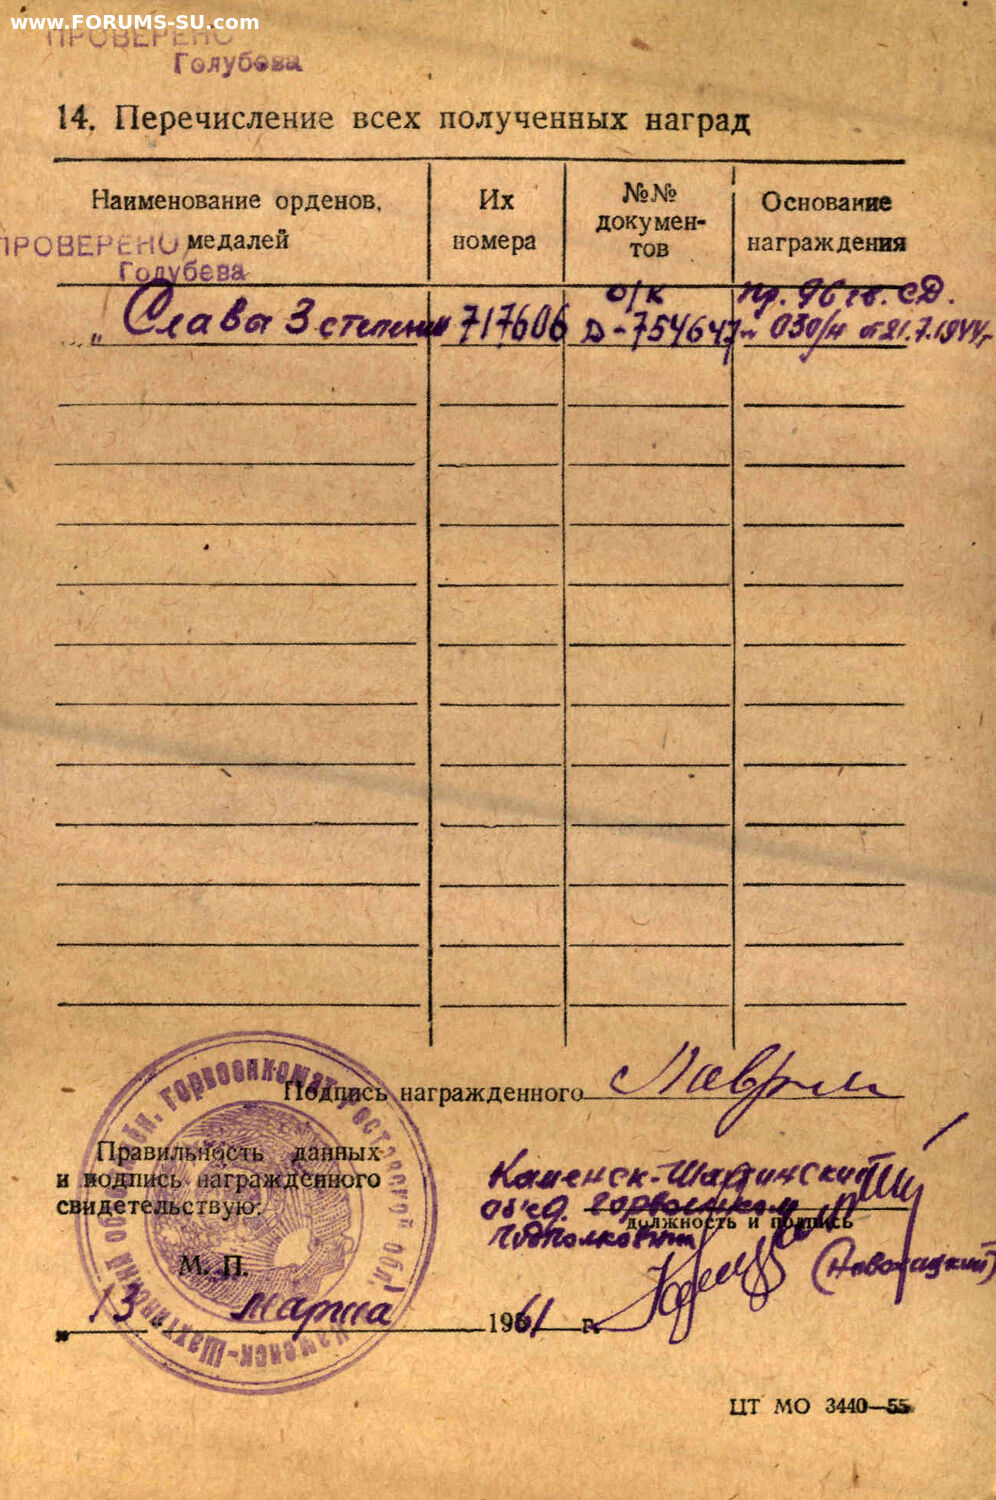 www.FORUMS-SU.com
ПРОВЕРЕНО
Голубева
14. Перечисление всех полученных наград
Наименование орденов, медалей
Их номера
№№ докумен-тов
Основание награждения
ПРОВЕРЕНО
Голубева
„ Слава 3 степени
717606
о/к
Д-754647
Пр. 96 гв. СД.
№ 030/н от 21.7.1944г
Подпись награжденного
Правильность данных
и подпись награжденного
свидетельствую:
Каменск-Шахтинский
объед. горвоенком
должность и подпись
Подполковник
М. П.
„ 13 “ марта 1961 г.
ЦТ МО 3440—55